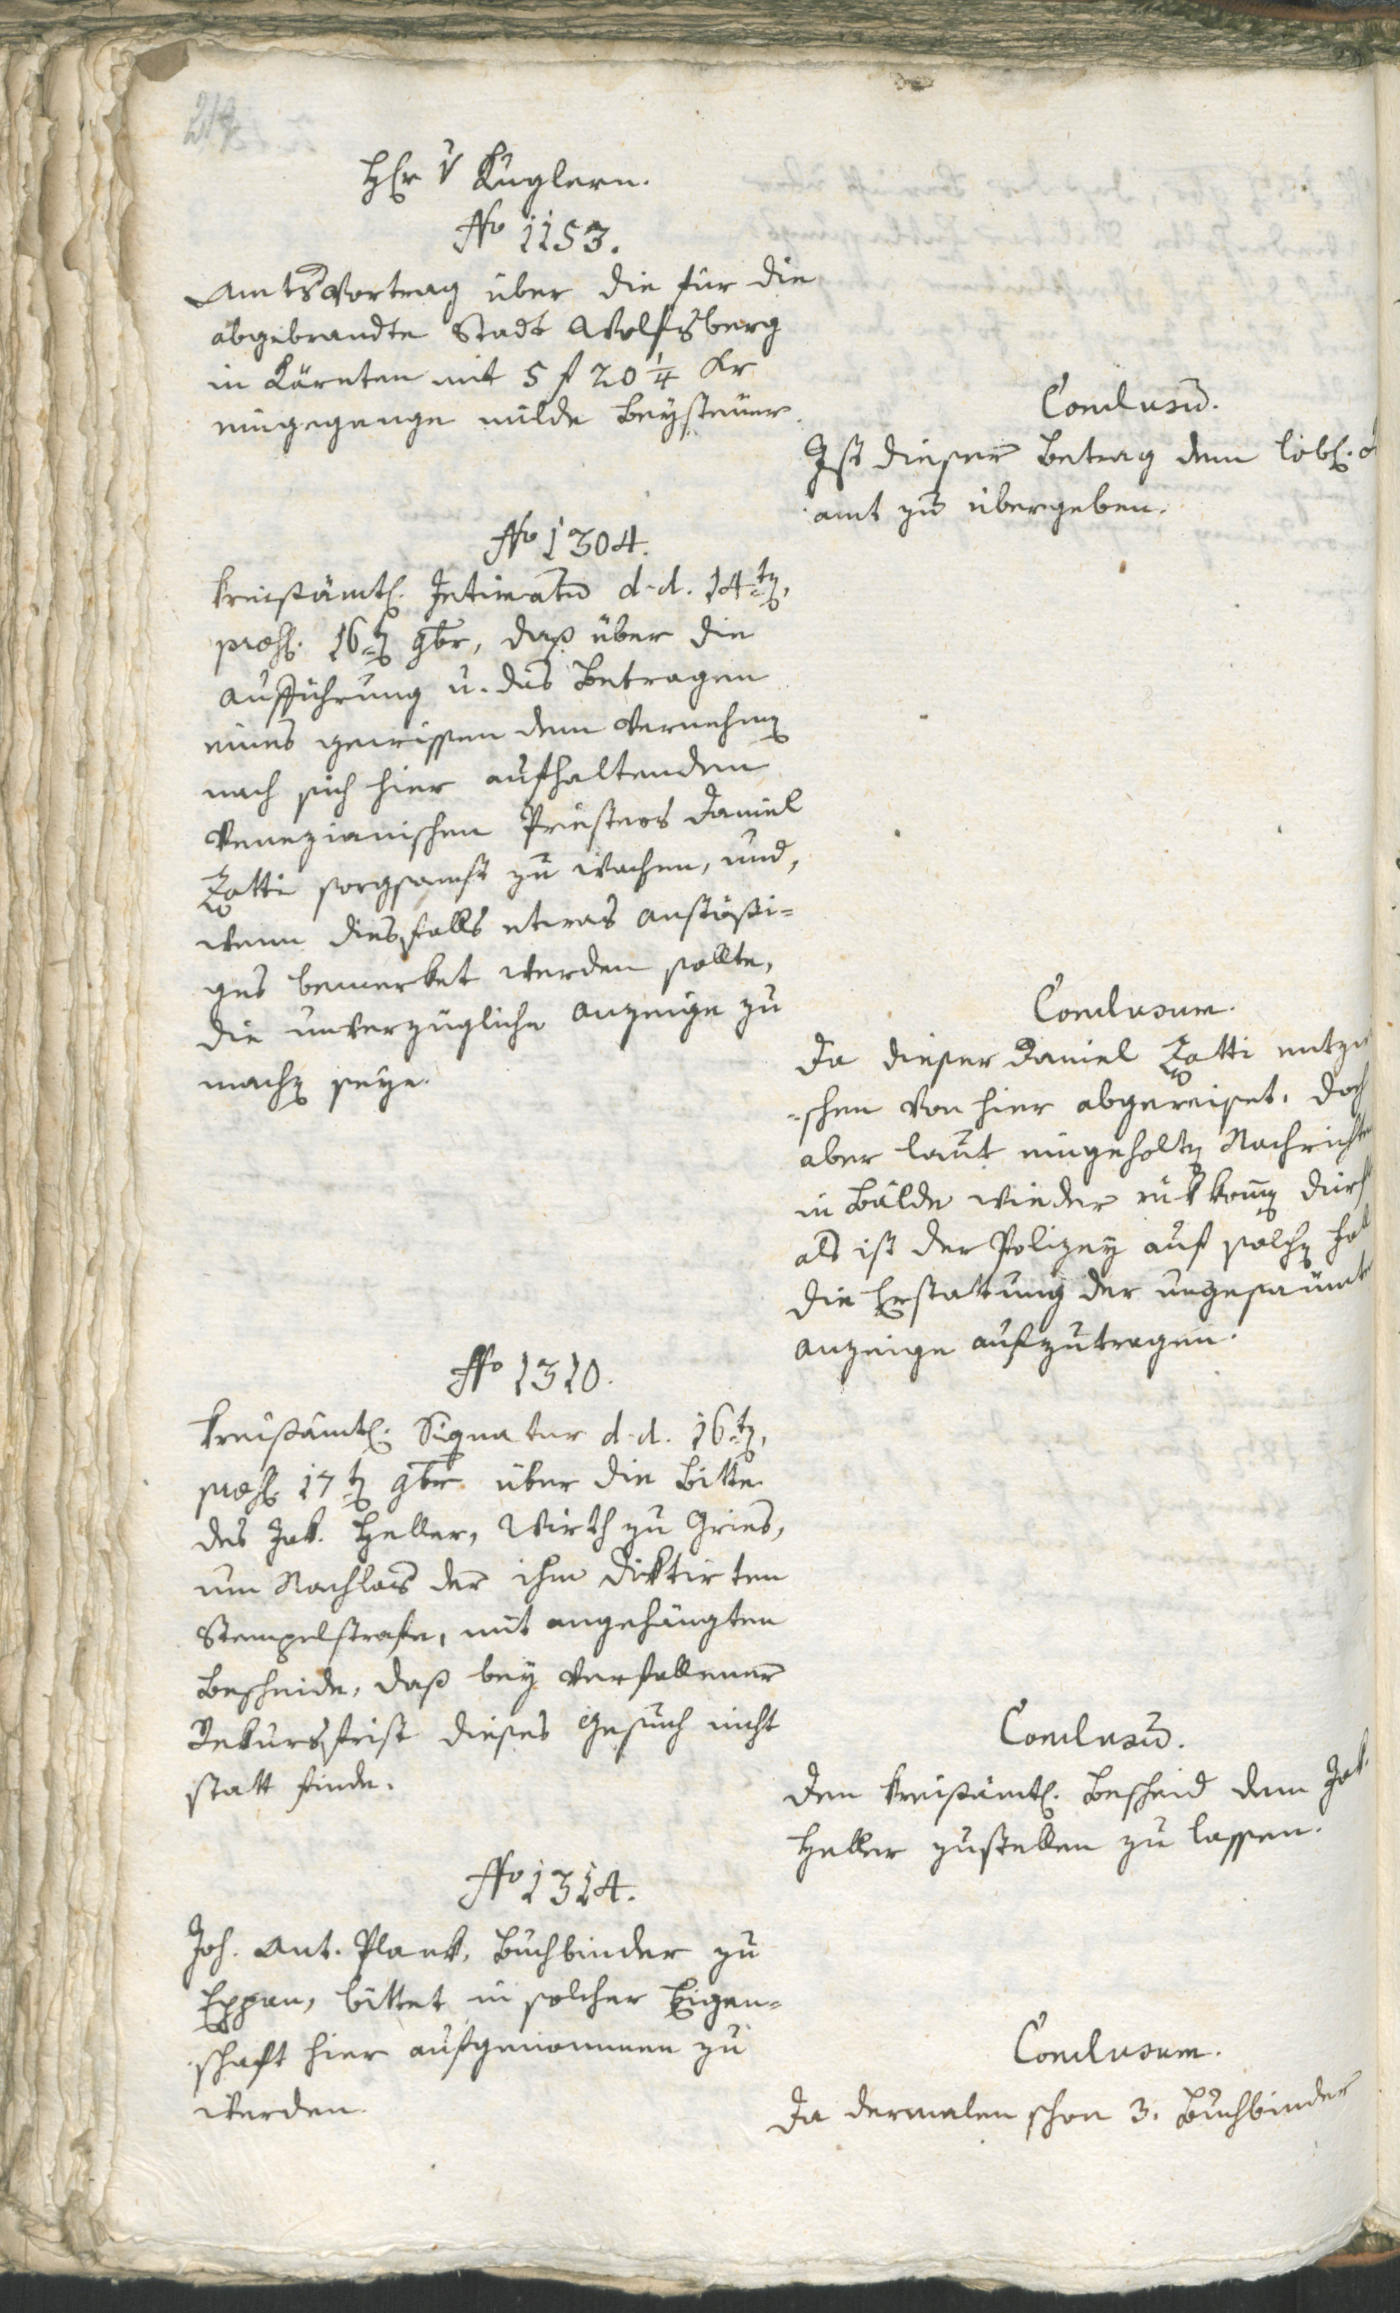 Hr v Kuglern.
No 1153.
Amtsvortrag über die für die
abgebrandte Stadt Wolfsberg
in Kärnten mit 5 f 20 1/4 Kr
eingegange milde Beysteuer.
Conclusū.
Ist dieser Betrag dem löbl.
amt zu übergeben.
No 1304.
kreisämtl. Intimatū d.d. 14tn,
præs. 16tn 9br, daß über die
Aufführung u. das Betragen
eines gewissen dem Vernehmen
nach sich hier aufhaltenden
Venezianischen Priesters Daniel
Zatti sorgsamst zu wachen, und,
wenn diesfalls etwas anstößi=
ges bemerket werden sollte,
die unverzügliche Anzeige zu
machen seye.
Conclusum.
Da dieser Daniel Zatti entzwi
=schen von hier abgereiset, doch
aber laut eingeholten Nachrichten
in Bälde wieder rükkomen dürft
als ist der Polizey auf solchen Fal
die Erstattung der ungesäumte
Anzeige aufzutragen.
No 1310.
kreisämtl. Signatur d.d. 16tn,
præs. 17tn 9br über die Bitte
des Jak. Heller, Wirth zu Gries,
um Nachlas der ihm diktirten
Stempelstrafe, mit angehängten
Bescheide, daß bey verfallener
Rekursfrist dieses Gesuch nicht
statt finde.
Conclusū.
Den kreisämtl. Bescheid dem Jak.
Heller zustellen zu lassen.
No 1314.
Joh. Ant. Plank, Buchbinder zu
Eppan, bittet in solcher Eigen=
schaft hier aufgenommen zu
werden.
Conclusum.
Da dermalen schon 3. Buchbinder